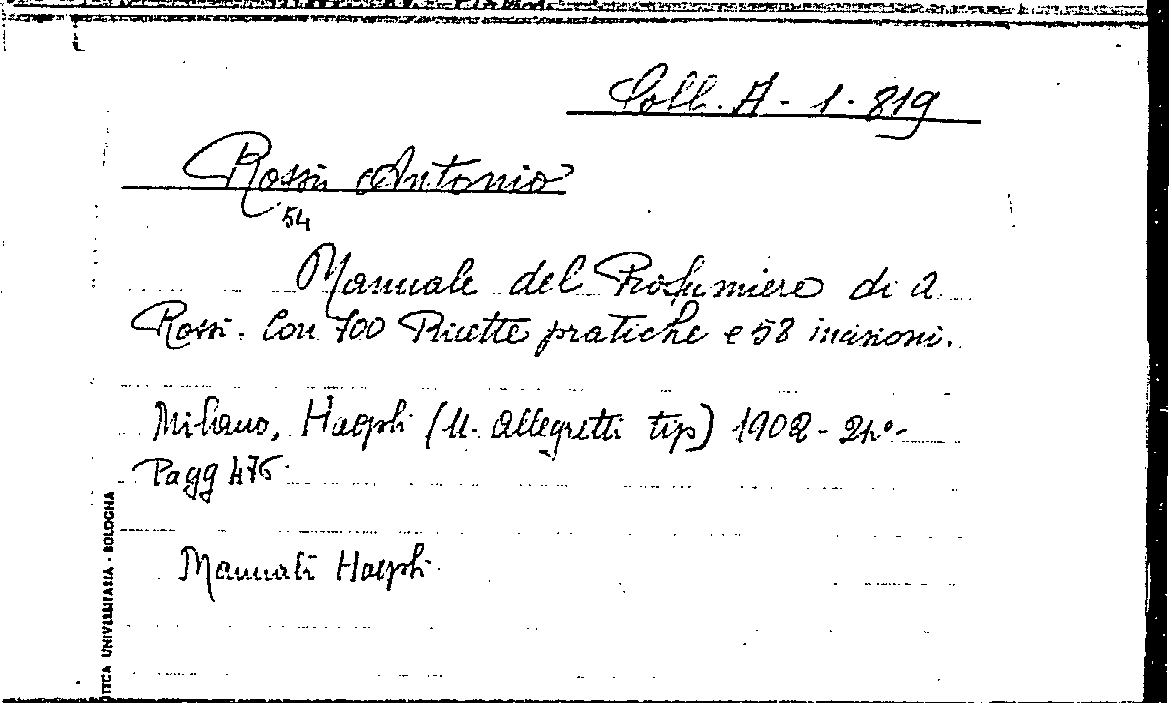 Coll. A - 1 - 819
Rossi Antonio
54
Manuale del Profumiere di A.
Rossi. Con 700 Ricette pratiche e 58 incisioni.
Milano, Hoepli (U. Allegretti tip) 1902 - 24° -
Pagg 476.
Manuali Hoepli.
OTECA UNIVERSITARIA - BOLOGNA